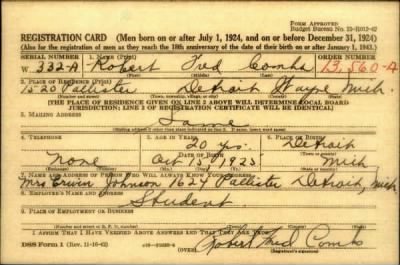 FORM APPROVED
REGISTRATION CARD (Men born on or after July 1, 1924, and on or before December 31, 1924)
(Also for the registration of men as they reach the 18th anniversary of the date of their birth on or after January 1, 1943.)
SERIAL NUMBER 1. NAME (Print) ORDER NUMBER
W 332 A Robert Fred Combs 13,560-A
(First) (Middle) (Last)
2. PLACE OF RESIDENCE (Print)
1520 Pallister Detroit Wayne Mich.
(Number and street) (Town, township, village, or city) (County) (State)
[THE PLACE OF RESIDENCE GIVEN ON LINE 2 ABOVE WILL DETERMINE LOCAL BOARD
JURISDICTION; LINE 2 OF REGISTRATION CERTIFICATE WILL BE IDENTICAL]
3. MAILING ADDRESS
Same
4. TELEPHONE 5. AGE IN YEARS 6. PLACE OF BIRTH
20 yrs. Detroit
DATE OF BIRTH
None Oct 15 1923 Mich
7. NAME AND ADDRESS OF PERSON WHO WILL ALWAYS KNOW YOUR ADDRESS
Mrs Erwin Johnson 1624 Pallister Detroit Mich
8. EMPLOYER'S NAME AND ADDRESS
Student
9. PLACE OF EMPLOYMENT OR BUSINESS
I AFFIRM THAT I HAVE VERIFIED ABOVE ANSWERS AND THAT THEY ARE TRUE.
DSS Form 1 (Rev. 11-16-42) (OVER) Robert Fred Combs
(Registrant's signature)